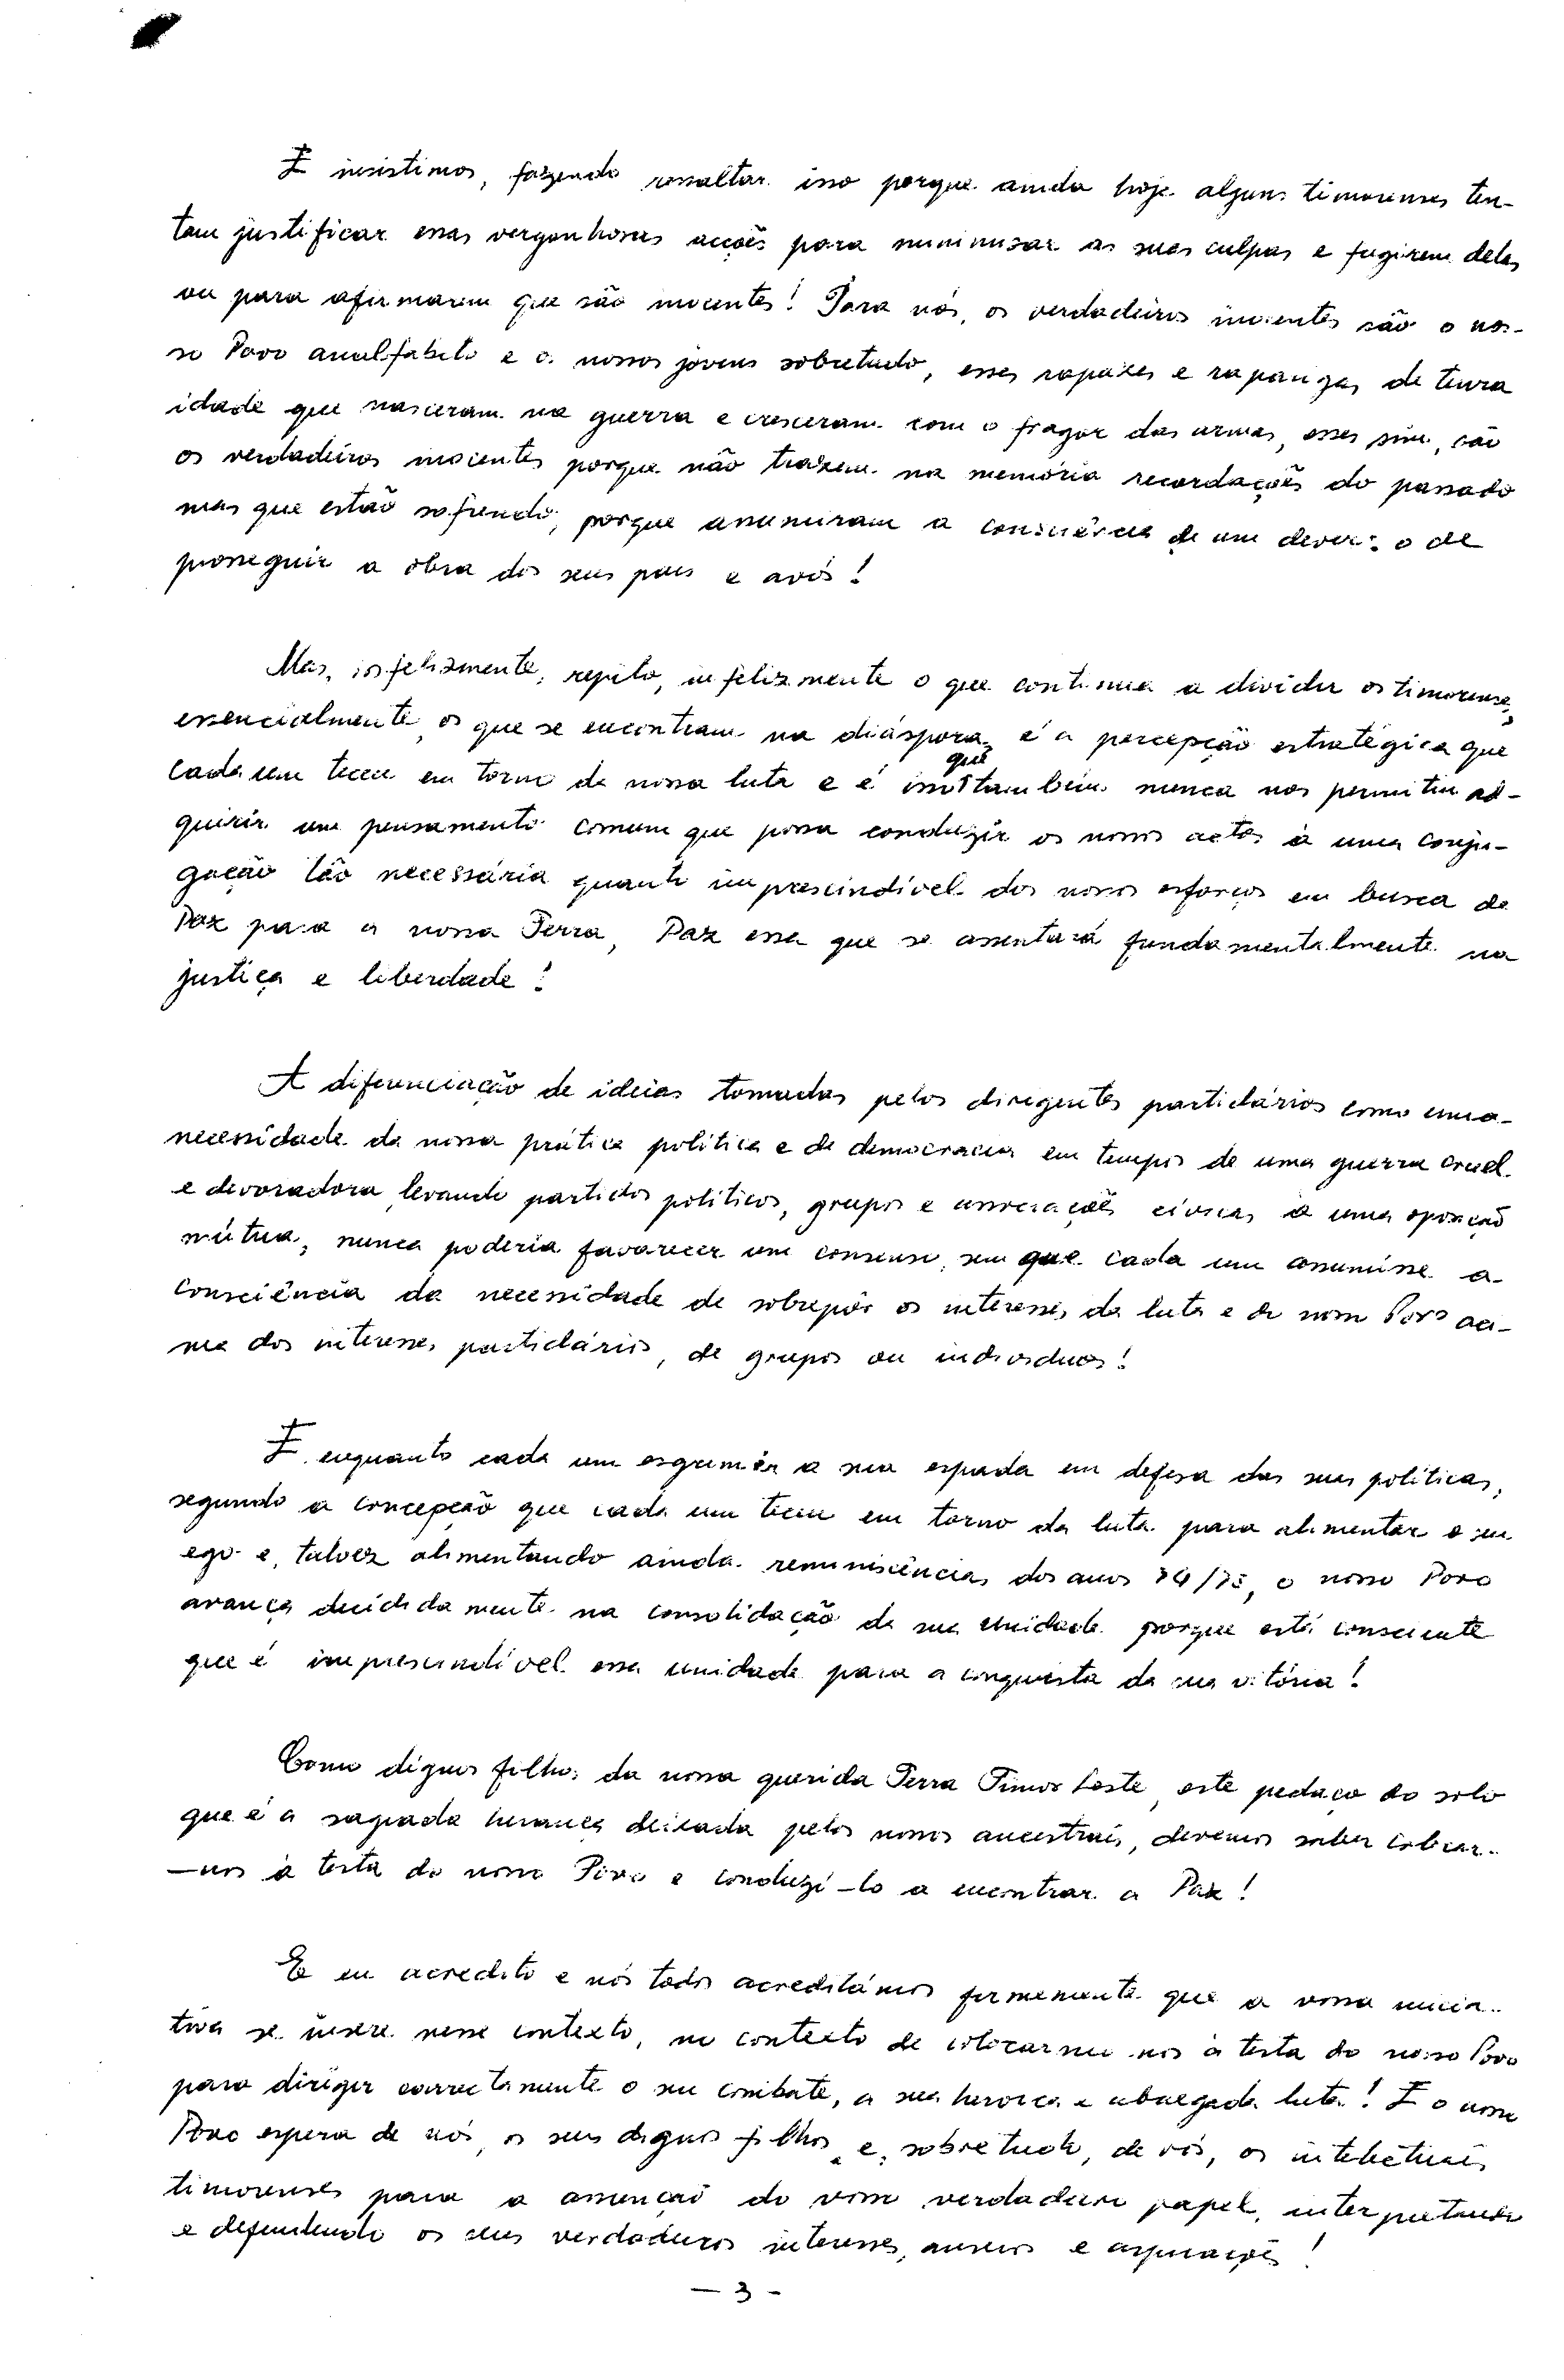 E insistimos, fazendo ressaltar isso porque ainda hoje alguns timorenses ten-
tam justificar essas vergonhosas acções para minimisar as suas culpas e fugirem delas
ou para afirmarem que são inocentes! Para nós, os verdadeiros inocentes são o nos-
so Povo analfabeto e os nossos jovens sobretudo, esses rapazes e raparigas de tenra
idade que nasceram na guerra e cresceram com o fragor das armas, esses sim, são
os verdadeiros inocentes porque não trazem na memória recordações do passado
mas que estão sofrendo, porque assumiram a consciência de um dever: o de
prosseguir a obra dos seus pais e avós!
Mas, infelizmente, repito, infelizmente o que continua a dividir os timorenses,
essencialmente os que se encontram na diáspora, é a percepção estratégica que
cada um tece em torno da nossa luta e é isso que também nunca nos permitiu ad-
quirir um pensamento comum que possa conduzir os nossos actos à uma conju-
gação tão necessária quanto imprescindível dos nossos esforços em busca da
Paz para a nossa Terra, Paz essa que se assentará fundamentalmente na
justiça e liberdade!
A diferenciação de ideias tomadas pelos dirigentes partidários como uma
necessidade da nossa prática política e de democracia em tempos de uma guerra cruel
e devoradora levando partidos políticos, grupos e associações cívicas a uma oposição
mútua, nunca poderia favorecer um consenso, sem que cada um assumisse a
consciência da necessidade de sobrepôr os interesses da luta e do nosso Povo aci-
ma dos interesses partidários, de grupos ou indivíduos!
E enquanto cada um esgrimir a sua espada em defesa das suas políticas,
segundo a concepção que cada um tece em torno da luta para alimentar o seu
ego e, talvez alimentando ainda reminiscências dos anos 74/75, o nosso Povo
avança decididamente na consolidação da sua unidade porque está consciente
que é imprescindível essa unidade para a conquista da sua vitória!
Como dignos filhos da nossa querida Terra Timor Leste, este pedaço do solo
que é a sagrada herança deixada pelos nossos ancestrais, devemos saber colocar-
-nos à testa do nosso Povo e conduzi-lo a encontrar a Paz!
E eu acredito e nós todos acreditámos firmemente que a vossa inicia-
tiva se insere nesse contexto, no contexto de colocarmo nos à testa do nosso Povo
para dirigir correctamente o seu combate, a sua heroica e abnegada luta! E o nosso
Povo espera de nós, os seus dignos filhos e, sobretudo, de vós, os intelectuais
timorenses para a assunção do vosso verdadeiro papel, interpretando
e defendendo os seus verdadeiros interesses, anseios e aspirações!
- 3 -